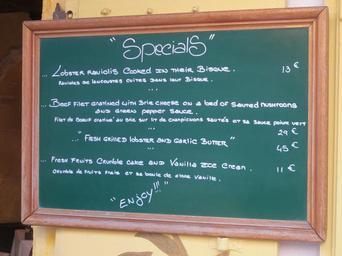 "Specials"
... Lobster Raviolis Cooked in their Bisque. 13 €
Ravioles de langoustes cuites dans leur Bisque.
...
... Beef Filet gratined with Brie cheese on a bed of sauted mushrooms
and green pepper sauce.
Filet de Boeuf gratiné au Brie sur lit de champignons sautés et sa sauce poivre vert
29 €
... "Fresh grilled lobster and garlic Butter" 45 €
...
... Fresh Fruits Crumble cake and Vanilla Ice cream. 11 €
Crumble de fruits frais et sa boule de glace Vanille.
"Enjoy!!!"